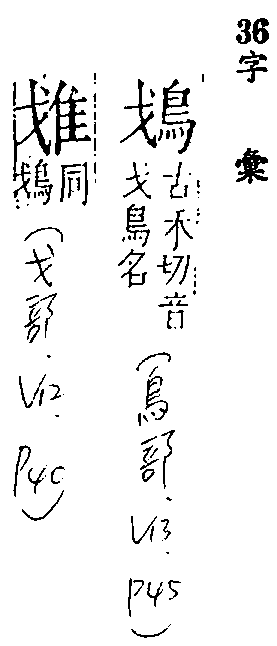 36字彙
古禾切音
戈鳥名
(鳥部、V13、P45)
同
(戈部、V12、P40)